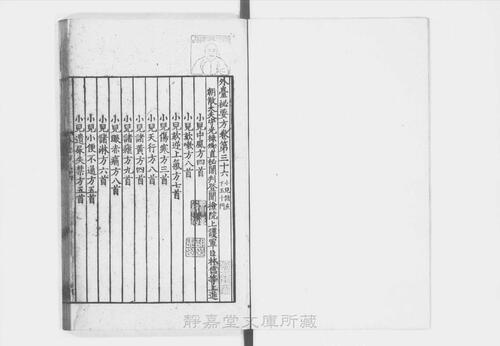 外臺祕要方卷第三十六 小兒諸疾下五十門
朝散大夫守光祿卿直祕閣判登聞檢院上護軍臣林億等上進
小兒中風方四首
小兒欬嗽方八首
小兒欬逆上氣方七首
小兒傷寒方三首
小兒天行方八首
小兒諸黃方四首
小兒諸癰方九首
小兒諸淋方六首
小兒小便不通方五首
小兒遺尿失禁方五首
靜嘉堂文庫所藏